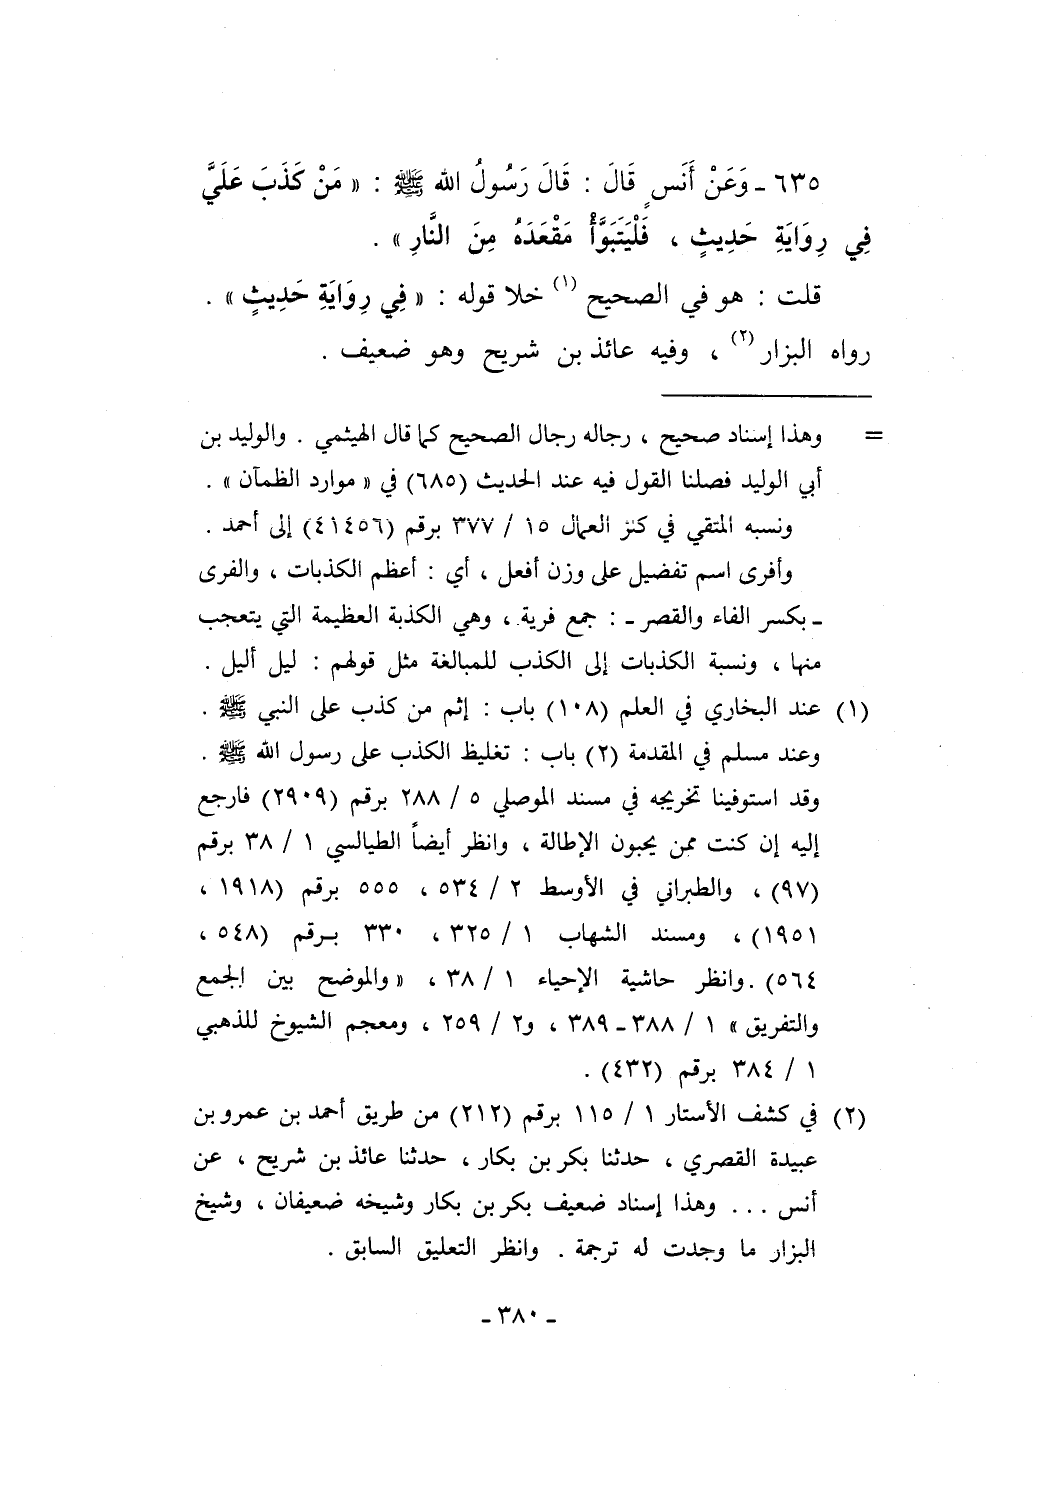 ٦٣٥ ـ وَعَنْ أَنَسٍ قَالَ : قَالَ رَسُولُ الله ﷺ : « مَنْ كَذَبَ عَلَيَّ
فِي رِوَايَةِ حَدِيثٍ ، فَلْيَتَبَوَّأْ مَقْعَدَهُ مِنَ النَّارِ » .
قلت : هو في الصحيح (١) خلا قوله : « فِي رِوَايَةِ حَدِيثٍ » .
رواه البزار (٢) ، وفيه عائذ بن شريح وهو ضعيف .
= وهذا إسناد صحيح ، رجاله رجال الصحيح كما قال الهيثمي . والوليد بن
أبي الوليد فصلنا القول فيه عند الحديث (٦٨٥) في « موارد الظمآن » .
ونسبه المتقي في كنز العمال ١٥ / ٣٧٧ برقم (٤١٤٥٦) إلى أحمد .
وأفرى اسم تفضيل على وزن أفعل ، أي : أعظم الكذبات ، والفرى
ـ بكسر الفاء والقصر ـ : جمع فرية ، وهي الكذبة العظيمة التي يتعجب
منها ، ونسبة الكذبات إلى الكذب للمبالغة مثل قولهم : ليل أليل .
(١) عند البخاري في العلم (١٠٨) باب : إثم من كذب على النبي ﷺ .
وعند مسلم في المقدمة (٢) باب : تغليظ الكذب على رسول الله ﷺ .
وقد استوفينا تخريجه في مسند الموصلي ٥ / ٢٨٨ برقم (٢٩٠٩) فارجع
إليه إن كنت ممن يحبون الإطالة ، وانظر أيضاً الطيالسي ١ / ٣٨ برقم
(٩٧) ، والطبراني في الأوسط ٢ / ٥٣٤ ، ٥٥٥ برقم (١٩١٨ ،
١٩٥١) ، ومسند الشهاب ١ / ٣٢٥ ، ٣٣٠ برقم (٥٤٨ ،
٥٦٤) . وانظر حاشية الإحياء ١ / ٣٨ ، « والموضح بين الجمع
والتفريق » ١ / ٣٨٨ ـ ٣٨٩ ، و٢ / ٢٥٩ ، ومعجم الشيوخ للذهبي
١ / ٣٨٤ برقم (٤٣٢) .
(٢) في كشف الأستار ١ / ١١٥ برقم (٢١٢) من طريق أحمد بن عمرو بن
عبيدة القصري ، حدثنا بكر بن بكار ، حدثنا عائذ بن شريح ، عن
أنس ... وهذا إسناد ضعيف بكر بن بكار وشيخه ضعيفان ، وشيخ
البزار ما وجدت له ترجمة . وانظر التعليق السابق .
ـ ٣٨٠ ـ